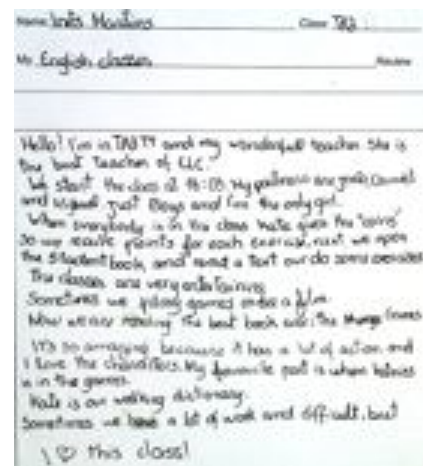 Name Inés Class TA3
My English classes
Hello! I'm in TA3 and my wonderful teacher. She is
the best teacher of LLC.
We start the class at 18:05. My are
and Miguel just Boys and I'm the only girl.
When everybody is in the class Kate gives the "coins"
So we points for each exercise, next we open
the Student book, and read a text or do some exercises
The classes are very entertaining
Sometimes we games or a film
Now we are reading the best book ever: The Hunger Games
It's so amazing because it has a lot of action and
I love the characters. My favourite part is when
is in the games.
Kate is our walking dictionary.
Sometimes we have a lot of work and difficult, but
I ♡ this class!